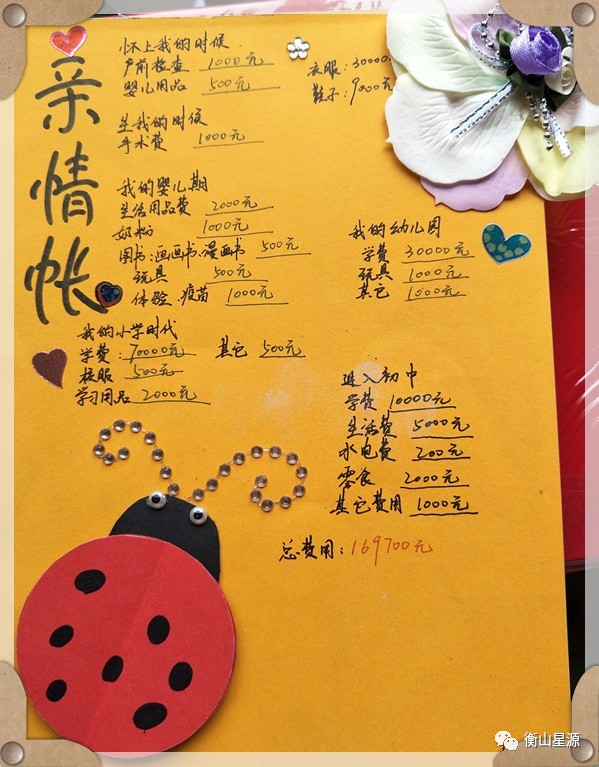 亲情帐
怀上我的时候
产前检查 1000元
婴儿用品 500元
衣服:30000
鞋子:9000元
生我的时候
手术费 1000元
我的婴儿期
生活用品费 2000元
奶粉 1000元
图书:画画书、漫画书 500元
玩具 500元
体验、疫苗 1000元
我的幼儿园
学费 30000元
玩具 1000元
其它 1000元
我的小学时代
学费:70000元 其它 500元
校服 500元
学习用品 2000元
进入初中
学费 10000元
生活费 5000元
水电费 200元
零食 2000元
其它费用 1000元
总费用:169700元
衡山星源